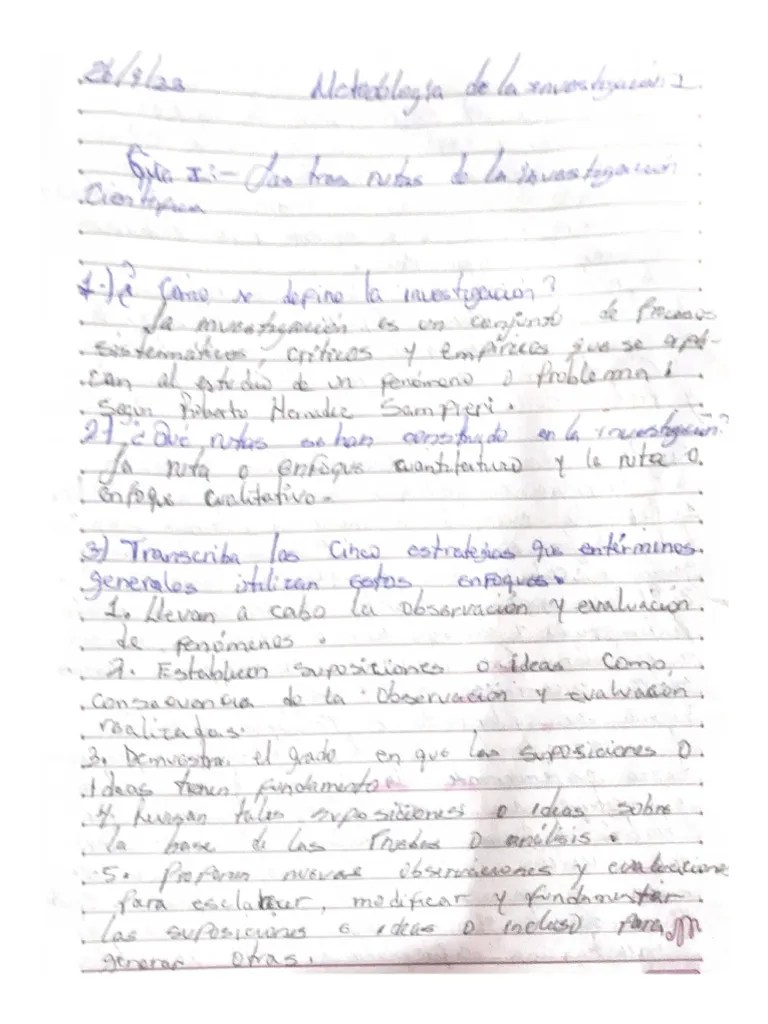 26/9/22 Metodología de la investigación I.
Guía I:- Las tres rutas de la investigación
Científica
1.) ¿Cómo se define la investigación?
La investigación es un conjunto de Procesos
Sistemáticos, críticos y empíricos que se apli-
can al estudio de un fenómeno o Problema
Según Roberto Sampieri.
2) ¿Qué rutas se han construido en la investigación?
La ruta o enfoque cuantitativo y la ruta o
enfoque Cualitativo.
3) Transcriba las Cinco estrategias que en términos
generales utilizan estos enfoques.
1. Llevan a cabo la observación y evaluación
de fenómenos.
2. Establecen suposiciones o ideas Como
Consecuencia de la Observación y evaluación
realizadas.
3. Demuestran el grado en que las suposiciones o
Ideas tienen fundamento
4. Revisan tales suposiciones o ideas sobre
la base de las Pruebas o análisis.
5. Proponen nuevas observaciones y evaluaciones
Para esclarecer, modificar y fundamentar
las suposiciones e ideas o incluso para
generar otras.